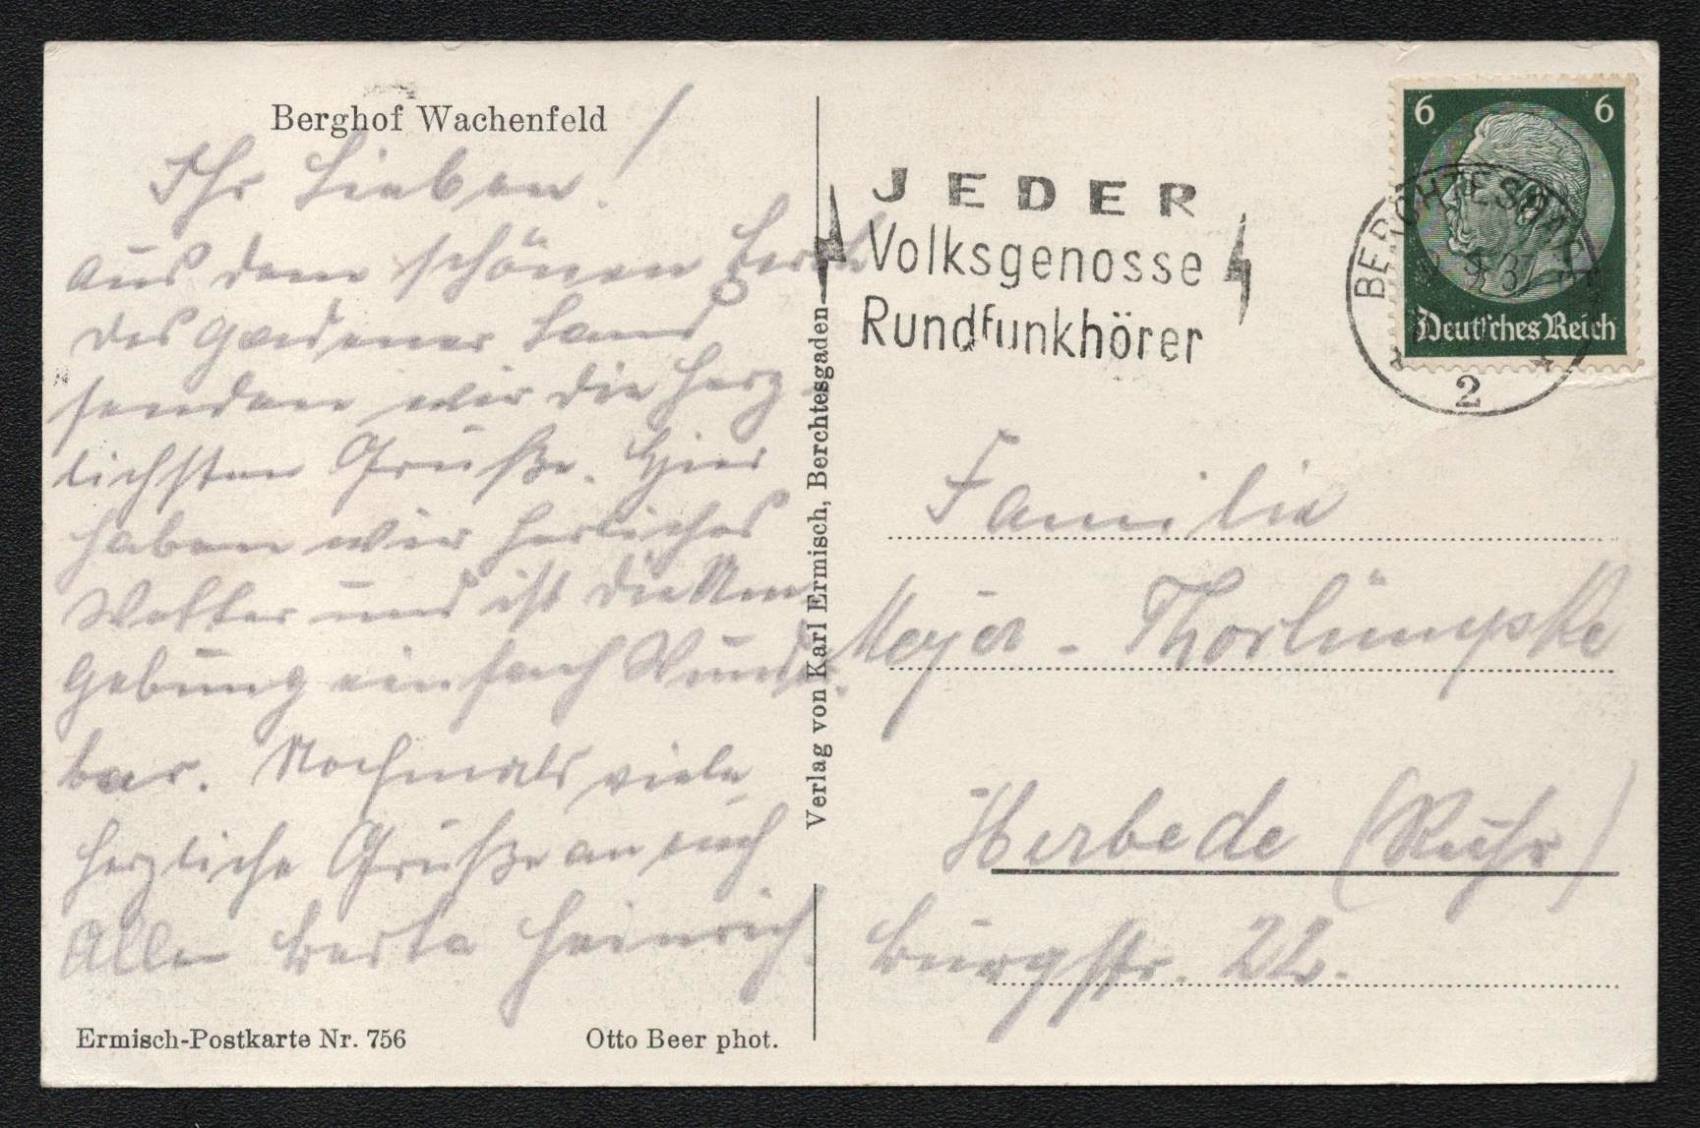 Berghof Wachenfeld
Ihr Lieben!
aus dem schönen Berch
des gadener Land
senden wir die herz-
lichsten Grüße. Hier
haben wir herliches
Wetter und ist die Um
gebung einfach Wunder
bar. Nochmals viele
herzliche Grüße an euch
Allen Berta Heinrich.
Ermisch-Postkarte Nr. 756
Otto Beer phot.
Verlag von Karl Ermisch, Berchtesgaden
JEDER
Volksgenosse
Rundfunkhörer
6 6
Deutsches Reich
BERCHTESGADEN
2
Familie
Meyer-
Herbede (Ruhr)
Burgstr. 22.